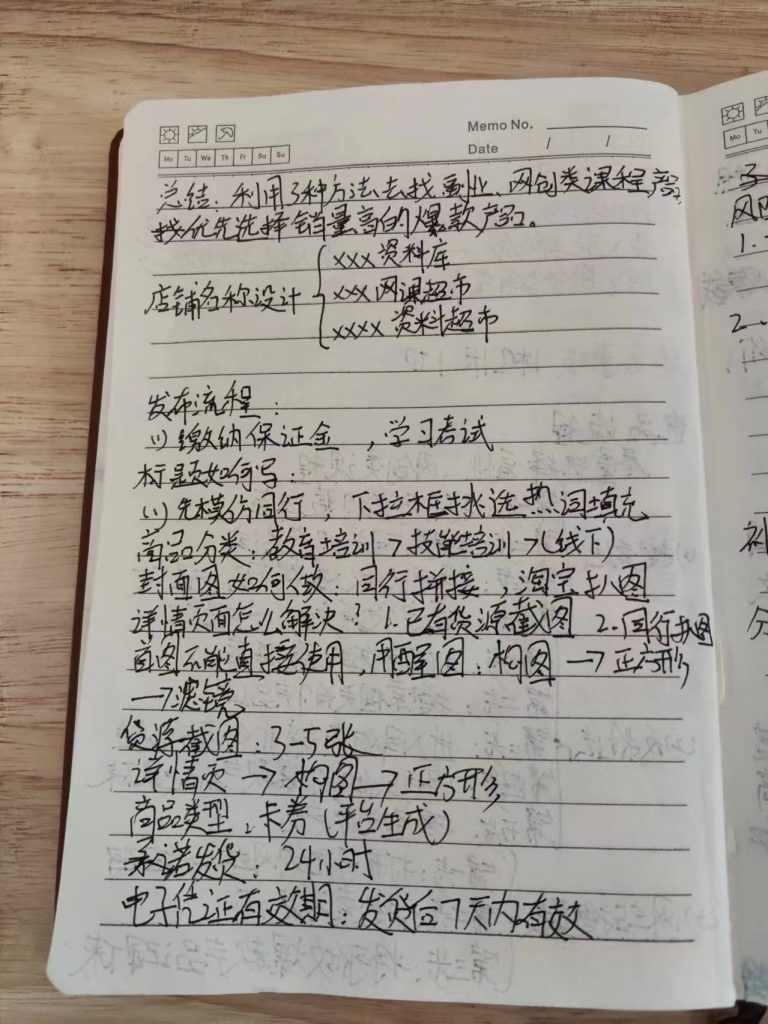 Memo No.
Date / /
Mo Tu We Th Fr Sa Su
总结：利用3种方法去找副业、网创类课程,产品
找优先选择销量高的爆款产品。
店铺名称设计
xxx资料库
xxx网课超市
xxxx资料超市
发布流程：
(1)缴纳保证金，学习考试
标题如何写：
(1)先模仿同行，下拉框挑选热词填充
商品分类：教育培训>技能培训>(线下)
封面图如何做：同行拼接，淘宝扒图
详情页面怎么解决？1.已有货源截图 2.同行扒图
首图不能直接使用，用醒图：构图→正方形
→滤镜
货源截图：3-5张
详情页→构图→正方形
商品类型：卡券(平台生成)
承诺发货：24小时
电子凭证有效期：发货后7天内有效
Mo Tu
1.
2.